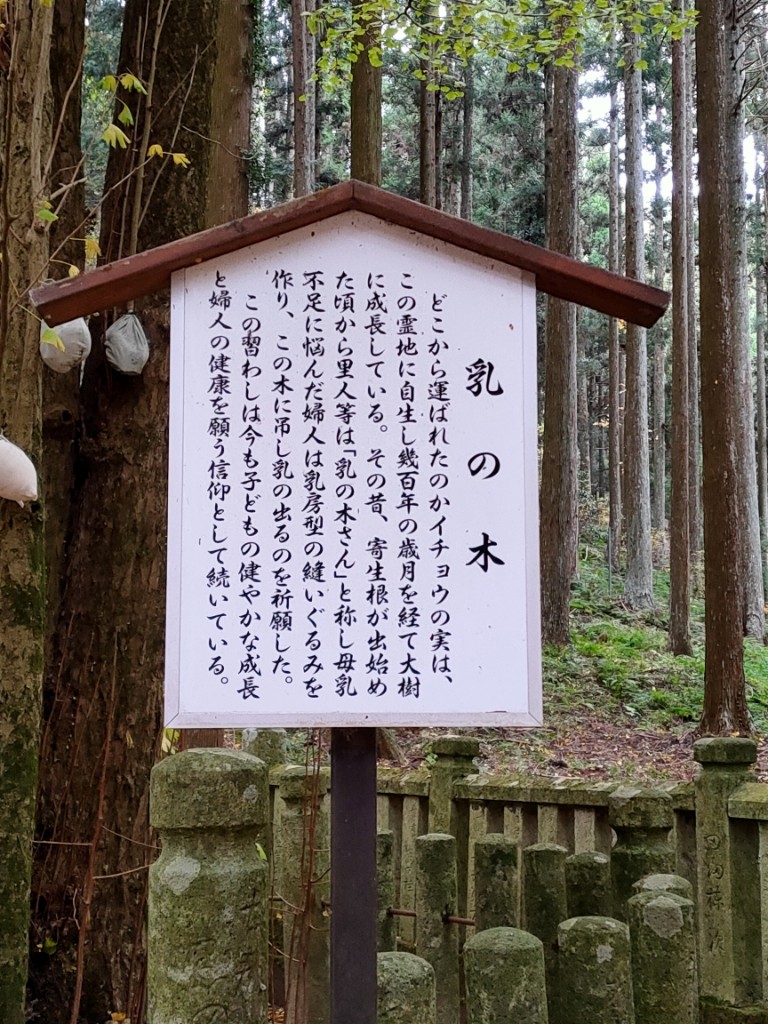 乳の木
どこから運ばれたのかイチョウの実は、
この霊地に自生し幾百年の歳月を経て大樹
に成長している。その昔、寄生根が出始め
た頃から里人等は「乳の木さん」と称し母乳
不足に悩んだ婦人は乳房型の縫いぐるみを
作り、この木に吊し乳の出るのを祈願した。
この習わしは今も子どもの健やかな成長
と婦人の健康を願う信仰として続いている。